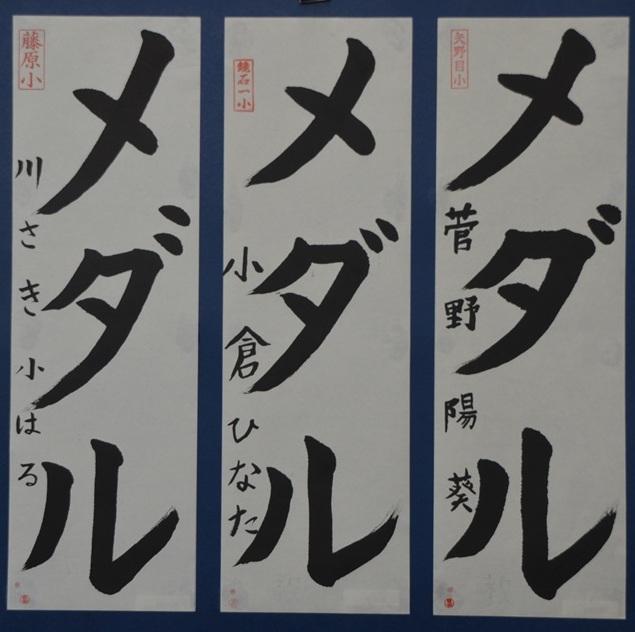 矢野目小
メダル
菅野陽葵
鏡石一小
メダル
小倉ひなた
藤原小
メダル
川さき小はる